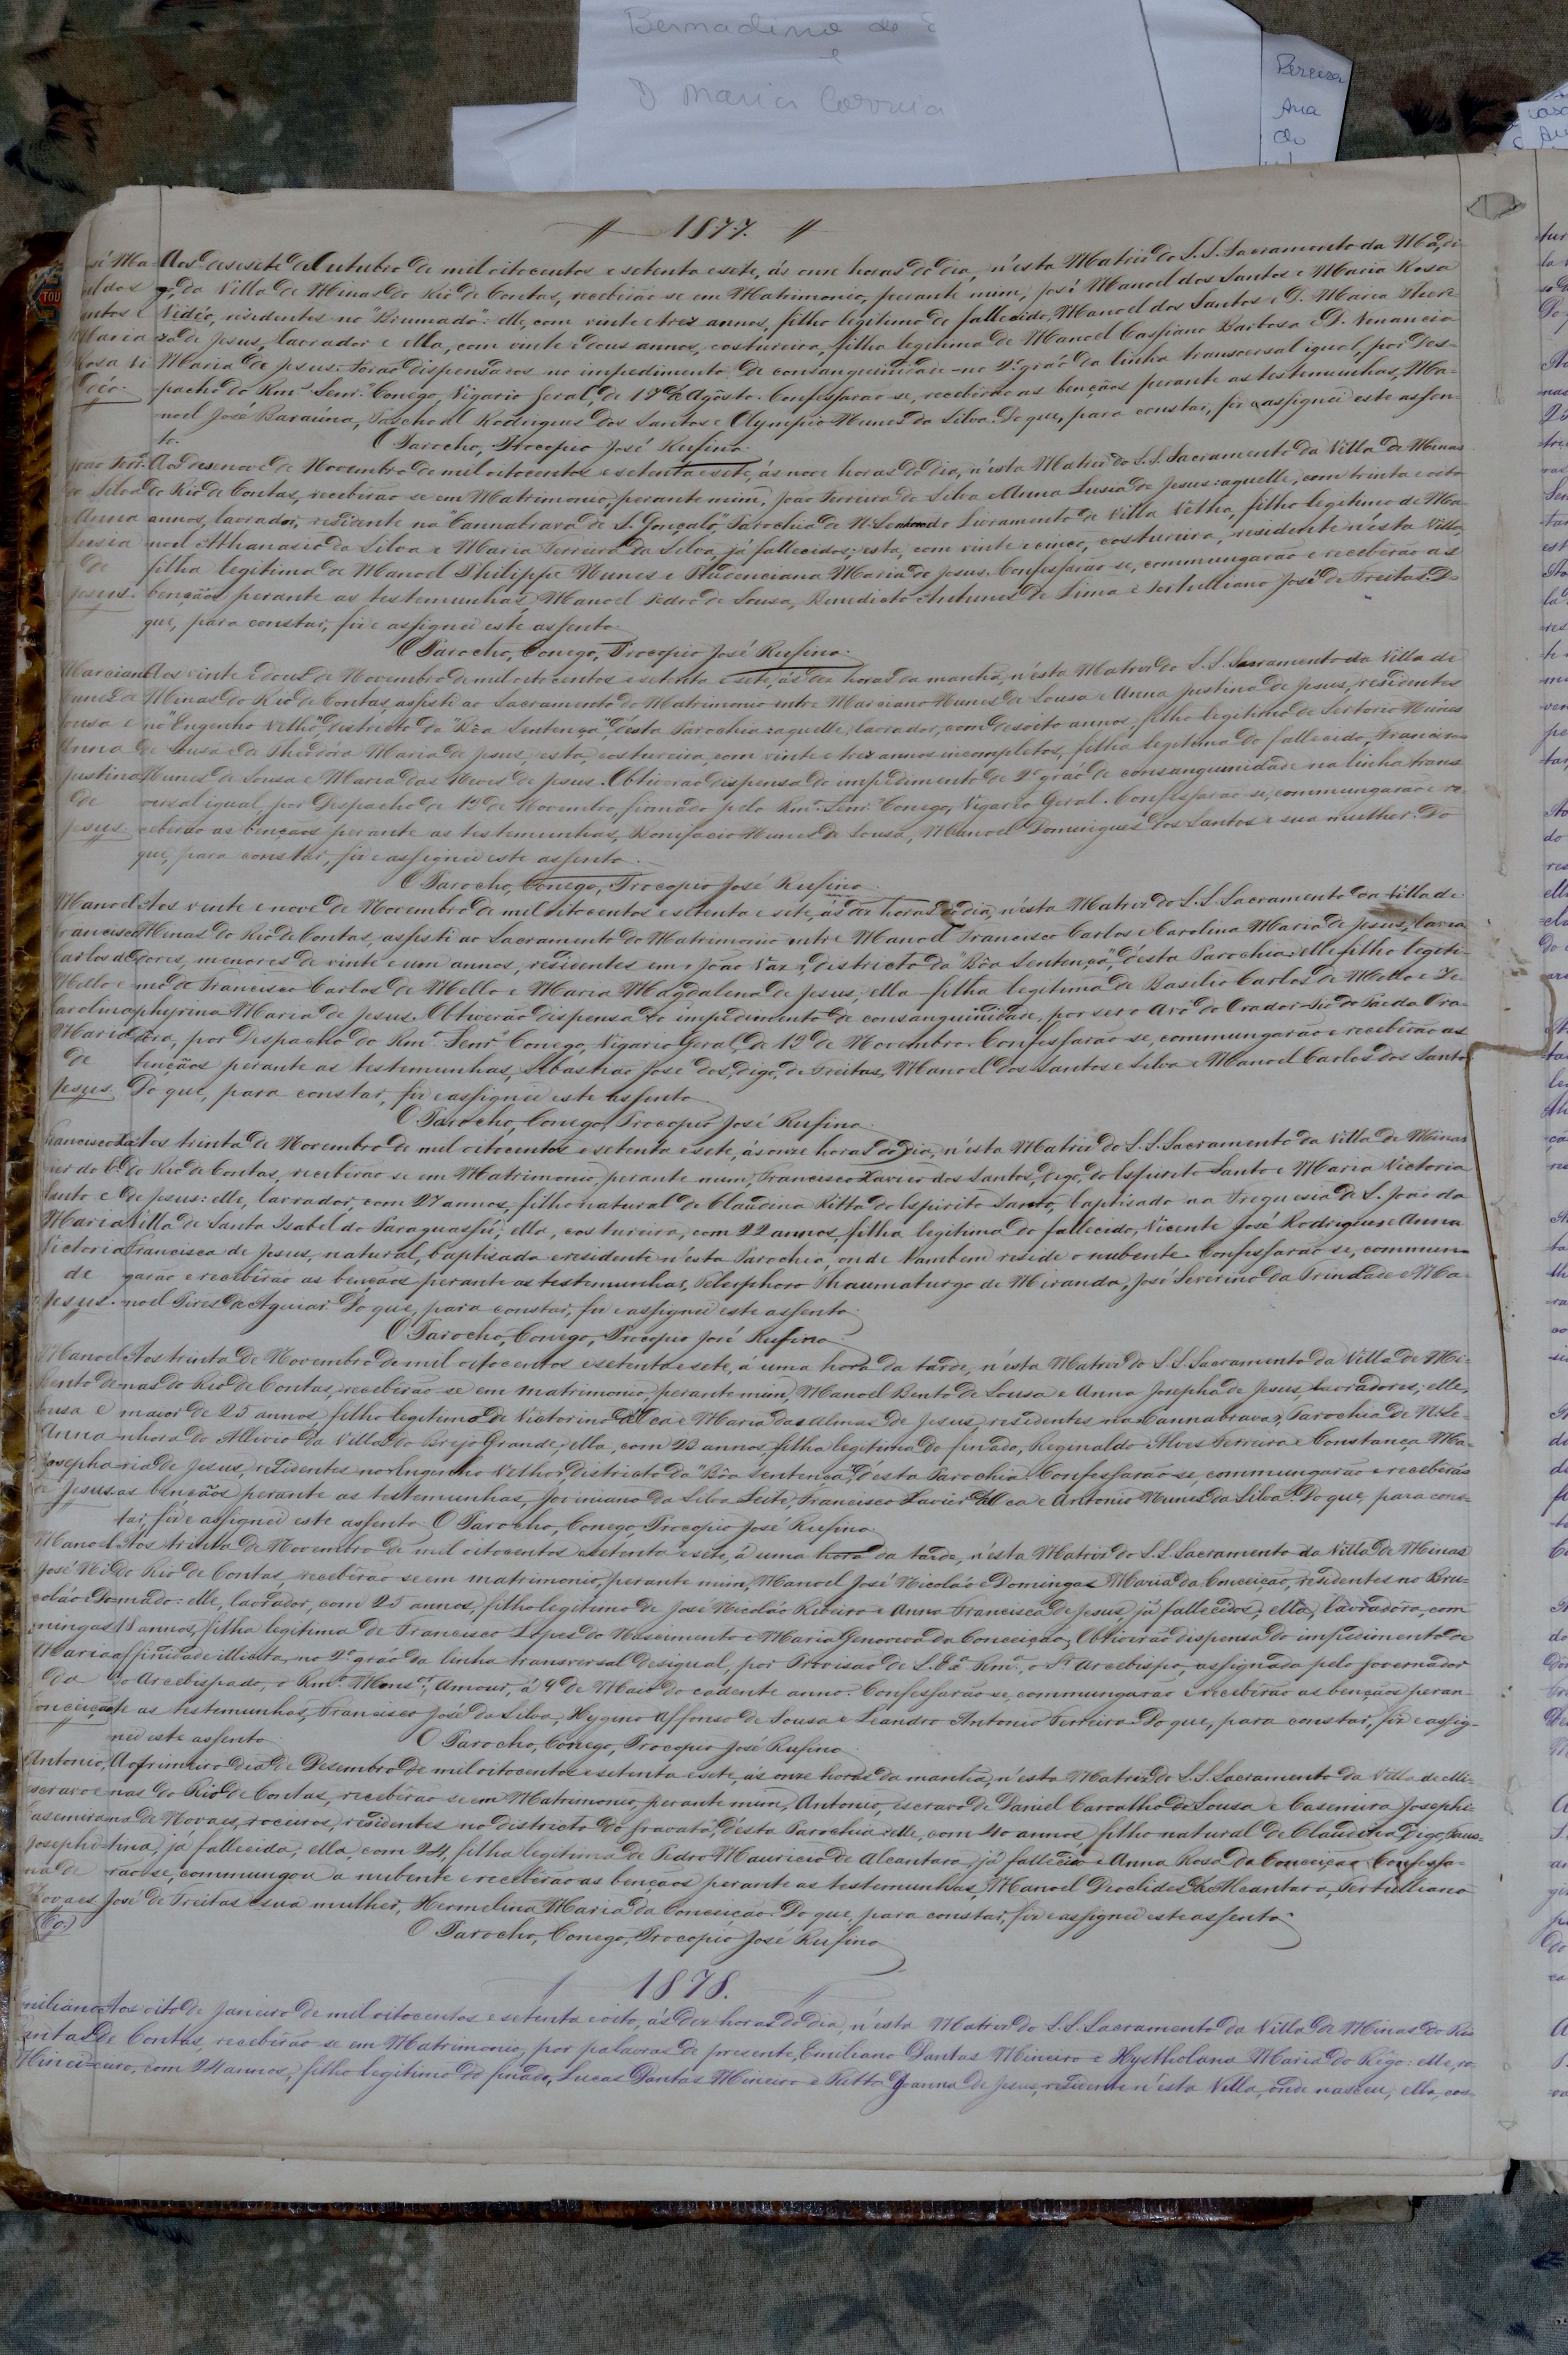 Bernadino de
e
D Maria Correia
Pereira
Ana
do
1877.
Aos desesete de Outubro de mil oitocentos e setenta e sete, ás onze horas do dia, n'esta Matriz do S.S. Sacramento da
da Villa de Minas do Rio de Contas, receberão-se em Matrimonio, perante mim, José Manoel dos Santos e Maria Rosa
residentes no "Brumado": elle, com vinte e trez annos, filho legitimo do fallecido, Manoel dos Santos e D. Maria There-
za de Jesus, lavrador e ella, com vinte e dous annos, costureira, filha legitima de Manoel Caspiano Barbosa e D. Venancia
Maria de Jesus. Forão dispensados no impedimento de consanguinidade no 2º gráo da linha transversal igual, por Des-
pacho do Rmº Senrº Conego, Vigario Geral, de 17 de Agôsto. Confessarão-se, receberão as bençãos perante as testemunhas, Ma-
noel José Baraúna, Paschoal Rodrigues dos Santos e Olympio Nunes da Silva. Do que, para constar, fiz e assignei este assen-
to.
O Parocho, Procopio José Rufino.
João Ferrª Aos desenove de Novembro de mil oitocentos e setenta e sete, ás nove horas do dia, n'esta Matriz do S.S. Sacramento da Villa de Minas
da Silva do Rio de Contas, receberão-se em Matrimonio, perante mim, João Ferreira da Silva e Anna Lusia de Jesus: aquelle, com trinta e oito
Anna annos, lavrador, residente na "Cannabrava de S. Gonçalo", Parochia de N. Senhora do Livramento de Villa Velha, filho legitimo de Ma-
Lusia noel Athanasio da Silva e Maria Ferreira da Silva, já fallecidos; esta, com vinte e cinco, costureira, residente n'esta Villa,
de filha legitima de Manoel Philippe Nunes e Prudenciana Maria de Jesus. Confessarão-se, commungarão e receberão as
Jesus. bençãos perante as testemunhas Manoel Pedro de Sousa, Benedicto Antunes de Lima e Tertulliano José de Freitas. Do
que, para constar, fiz e assignei este assento.
O Parocho, Conego, Procopio José Rufino.
Marciano Aos vinte e dous de Novembro de mil oitocentos e setenta e sete, ás dez horas da manhã, n'esta Matriz do S.S. Sacramento da Villa de
Nunes de Minas do Rio de Contas, assisti ao Sacramento do Matrimonio entre Marciano Nunes de Sousa e Anna Justina de Jesus, residentes
Sousa e no "Engenho Velho", districto da "Bôa Sentença", d'esta Parochia: aquelle, lavrador, com desoito annos, filho legitimo de Sertorio Nunes
Anna de Sousa e de Theodora Maria de Jesus; esta, costureira, com vinte e trez annos incompletos, filha legitima do fallecido, Francisco
Justina Nunes de Sousa e Maria das Neves de Jesus. Obtiverão dispensa do impedimento de 2º gráo de consanguinidade na linha trans-
de versal igual, por Despacho de 13 de Novembro, firmado pelo Rmº Senrº Conego, Vigario Geral. Confessarão-se, commungarão e re-
Jesus. ceberão as bençãos perante as testemunhas, Bonifacio Nunes de Sousa, Manoel Domingues dos Santos e sua mulher. Do
que, para constar, fiz e assignei este assento.
O Parocho, Conego, Procopio José Rufino.
Manoel Aos vinte e nove de Novembro de mil oitocentos e setenta e sete, ás dez horas do dia, n'esta Matriz do S.S. Sacramento da Villa de
Francisco Minas do Rio de Contas, assisti ao Sacramento do Matrimonio entre Manoel Francisco Carlos e Carolina Maria de Jesus, lavra-
Carlos de dores, menores de vinte e um annos, residentes em "João Vaz", districto da "Bôa Sentença", d'esta Parochia: elle filho legiti-
Mello e mo de Francisco Carlos de Mello e Maria Magdalena de Jesus; ella filha legitima de Basilio Carlos de Mello e Ze-
Carolina phyrina Maria de Jesus. Obtiverão dispensa do impedimento de consanguinidade, por ser o Avô do Orador Tio do Pae da Ora-
Maria dora, por Despacho do Rmº Senrº Conego, Vigario Geral, de 13 de Novembro. Confessarão-se, commungarão e receberão as
de bençãos perante as testemunhas, Sebastião José dos, digo, de Freitas, Manoel dos Santos e Silva e Manoel Carlos dos Santos.
Jesus. Do que, para constar, fiz e assignei este assento.
O Parocho, Conego, Procopio José Rufino.
Francisco Xa- Aos trinta de Novembro de mil oitocentos e setenta e sete, ás onze horas do dia, n'esta Matriz do S.S. Sacramento da Villa de Minas
vier do do Rio de Contas, receberão-se em Matrimonio, perante mim, Francisco Xavier dos Santos, digo, do Espirito Santo e Maria Victoria
Santo e de Jesus: elle, lavrador, com 27 annos, filho natural de Claudina Ritta do Espirito Santo, baptisado na Freguesia de S. João da
Maria Villa de Santa Isabel do Paraguassú; ella, costureira, com 22 annos, filha legitima do fallecido, Vicente José Rodrigues e Anna
Victoria Francisca de Jesus, natural, baptisada e residente n'esta Parochia, onde tambem reside o nubente. Confessarão-se, commun-
de garão e receberão as bençãos perante as testemunhas, Telesphoro Thaumaturgo de Miranda, José Severino da Trindade e Ma-
Jesus. noel Pires de Aguiar. Do que, para constar, fiz e assignei este assento.
O Parocho, Conego, Procopio José Rufino.
Manoel Aos trinta de Novembro de mil oitocentos e setenta e sete, á uma hora da tarde, n'esta Matriz do S.S. Sacramento da Villa de Mi-
Bento de nas do Rio de Contas, receberão-se em matrimonio, perante mim, Manoel Bento de Sousa e Anna Josepha de Jesus, lavradores; elle,
Sousa e maior de 25 annos, filho legitimo de Victorino e Maria das Almas de Jesus, residentes na "Cannabrava", Parochia de N. Se-
Anna nhora do Allivio da Villa do Brejo Grande; ella, com 23 annos, filha legitima do finado, Reginaldo Alves Ferreira e Constança Ma-
Josepha ria de Jesus, residentes no "Engenho Velho", districto da "Bôa Sentença", d'esta Parochia. Confessarão-se, commungarão e receberão
de Jesus. as bençãos perante as testemunhas, Joviniano da Silva Leite, Francisco Xavier e Antonio Nunes da Silva. Do que, para cons-
tar, fiz e assignei este assento. O Parocho, Conego, Procopio José Rufino.
Manoel Aos trinta de Novembro de mil oitocentos e setenta e sete, á uma hora da tarde, n'esta Matriz do S.S. Sacramento da Villa de Minas
José Ni- do Rio de Contas receberão-se em matrimonio, perante mim, Manoel José Nicoláo e Domingas Maria da Conceição, residentes no Bru-
coláo e Do- mado: elle, lavrador, com 25 annos, filho legitimo de José Nicoláo Ribeiro e Anna Francisca de Jesus, já fallecidos; ella, lavradora, com
mingas 18 annos, filha legitima de Francisco Lopes do Nascimento e Maria Genoveva da Conceição. Obtiverão dispensa do impedimento de
Maria affinidade illicita, no 2º gráo da linha transversal desigual, por Provisão de S. Exª Rmª, o Sr. Arcebispo, assignada pelo Governador
da do Arcebispado, o Rmº Monsr, Amour, á 9 de Maio do cadente anno. Confessarão-se, commungarão e receberão as bençãos peran-
Conceição te as testemunhas, Francisco José da Silva, Hygino Affonso de Sousa e Leandro Antonio Ferreira. Do que, para constar, fiz e assig-
nei este assento. O Parocho, Conego, Procopio José Rufino.
Antonio, Ao primeiro dia de Desembro de mil oitocentos e setenta e sete, ás onze horas da manhã, n'esta Matriz do S.S. Sacramento da Villa de Mi-
escravo e nas do Rio de Contas, receberão-se em Matrimonio, perante mim, Antonio, escravo de Daniel Carvalho de Sousa e Casemira Josephi-
Casemira na de Novaes, roceiros, residentes no districto do Gravatá, d'esta Parochia: elle, com 40 annos, filho natural de Claudina, digo, Faus-
Josephi- tina, já fallecida; ella, com 24, filha legitima de Pedro Mauricio de Alcantara, já fallecido e Anna Rosa da Conceição. Confessa-
na de rão-se, commungou a nubente e receberão as bençãos perante as testemunhas, Manoel Deoclides de Alcantara, Tertulliano
Novaes José de Freitas e sua mulher, Hermelina Maria da Conceição. Do que, para constar, fiz e assignei este assento.
O Parocho, Conego, Procopio José Rufino.
1878.
Emiliano Aos oito de Janeiro de mil oitocentos e setenta e oito, ás dez horas do dia, n'esta Matriz do S.S. Sacramento da Villa de Minas do Rio
Dantas de Contas, receberão-se em Matrimonio, por palavras de presente, Emiliano Dantas Mineiro e Hystholana Maria do Rêgo: elle, ro-
Minei- ceiro, com 24 annos, filho legitimo do finado, Lucas Dantas Mineiro e Ritta Joanna de Jesus, residente n'esta Villa, onde nasceu; ella, cos-